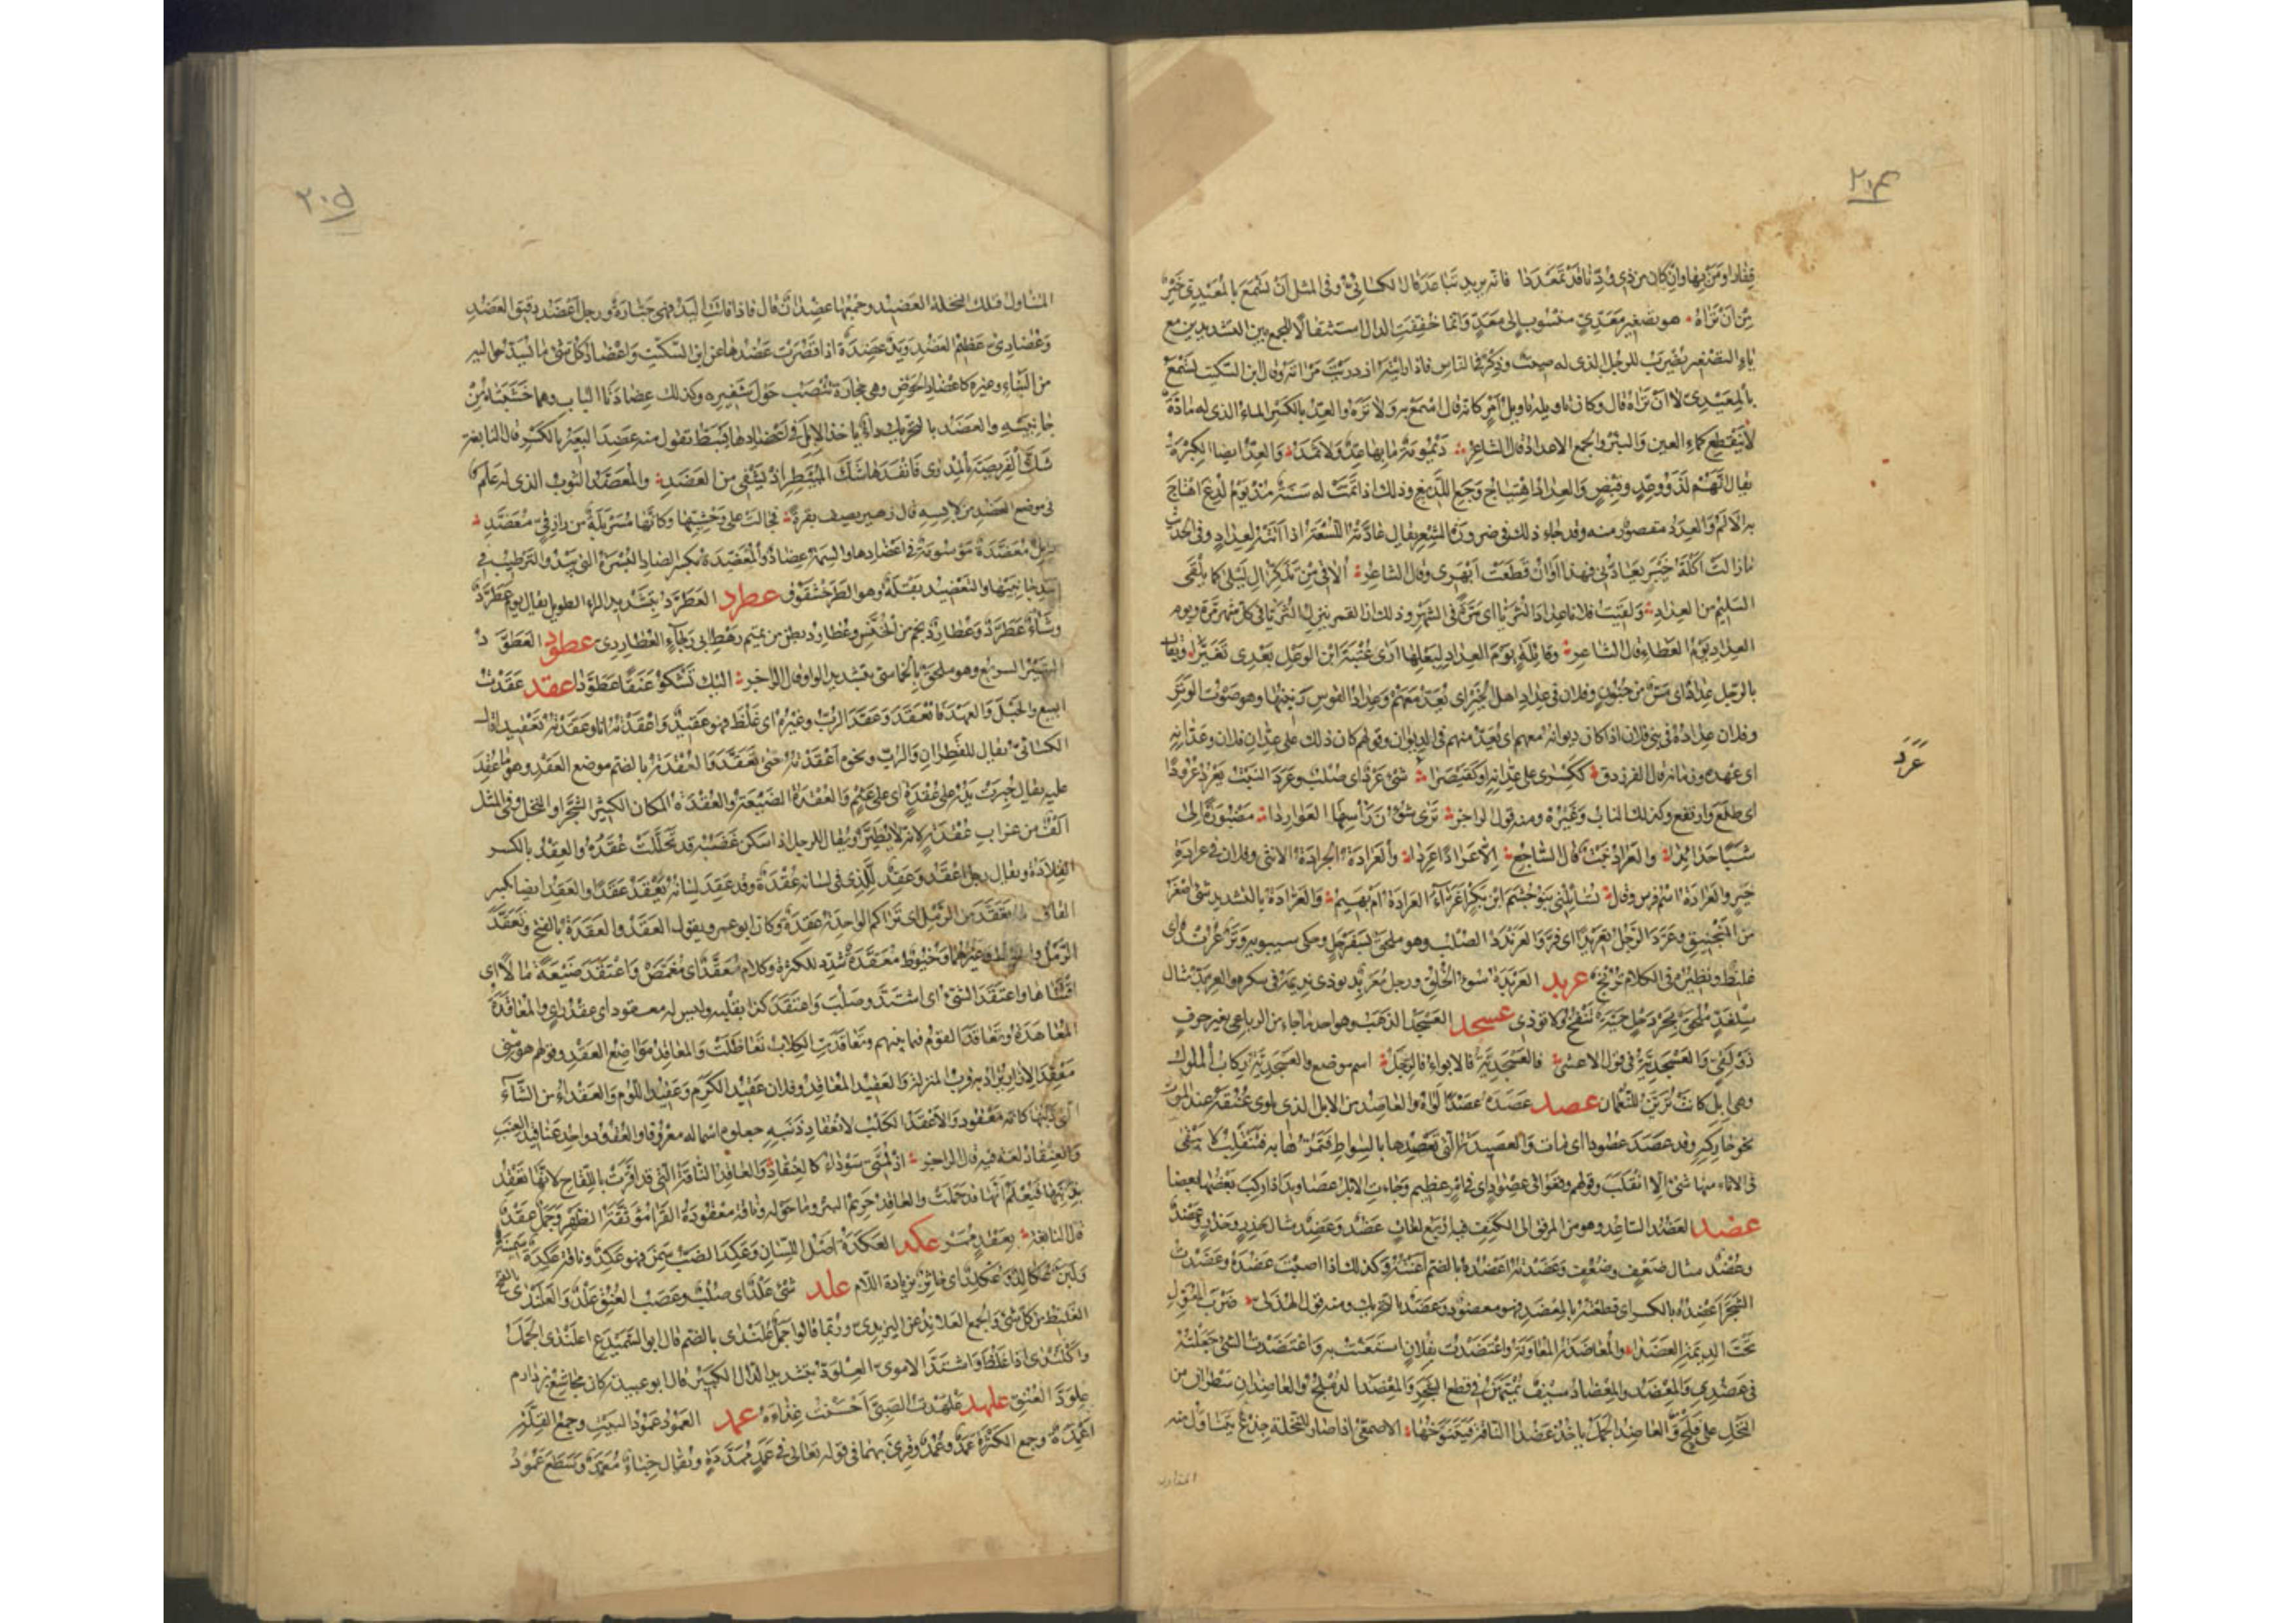 ٢٠٤
قفارا ومن بها وان كان من ذى ودنا قد تمعددا فانه يريد تباعد قال الكسائى وفى المثل ان تسمع بالمعيدى خير
من ان تراه هو تصغير معدى منسوب الى معد وانما خففت الدال استثقالا للجمع بين التشديدين مع
ياء التصغير يضرب للرجل الذى له صيت وذكر فى الناس فاذا رايته ازدريت مرآته وقال ابن السكيت تسمع
بالمعيدى لا ان تراه قال وكان تاويله تاويل امر كانه قال اسمع به ولا تره والعد بالكسر الماء الذى له مادة
لا ينقطع كماء العين والبئر والجمع الاعداد قال الشاعر ديمومة ما بها عد ولا ثمد والعد ايضا الكثرة
يقال انهم لذوو عد وقبص والعداد اهتياج وجع اللديغ وذلك اذا تمت له سنة منذ يوم لدغ اهتاج
به الالم والعدد مقصور منه وقد جاء ذلك فى ضرورة الشعر يقال عادته اللسعة اذا اتته لعداد وفى الحديث
ما زالت اكلة خيبر تعادنى فهذا اوان قطعت ابهرى وقال الشاعر الاقى من تذكر ال ليلى كما يلقى
السليم من العداد ولقيت فلانا عداد الثريا اى مرة فى الشهر وذلك ان القمر ينزل الثريا فى كل شهر مرة ويوم
العداد يوم العطاء قال الشاعر وقائلة يوم العداد لبعلها ارى عتبة ابن الوعل بعدى تغيرا ويقال
بالرجل عداد اى مس من جنون وفلان فى عداد اهل الخير اى يعد معهم وعداد القوس رنينها وهو صوت الوتر
وفلان عداده فى بنى فلان اذا كان ديوانه معهم اى يعد منهم فى الديوان وقولهم كان ذلك على عدان فلان وعدانه
اى عهده وزمانه قال الفرزدق ككسرى على عدانه او كقيصرا شئ عرد اى صلب وعرد النبت يعرد عرودا
عَرَدَ
اى طلع وارتفع وكذلك الناب وغيره ومنه قول الراجز ترى شؤن راسها العواردا مضبورة الى
شبا حدائدا والعراد نبت قال الساجع الا عرادا عردا والعرادة الجرادة الانثى وفلان فى عرادة
خير والعرادة اسم فرس وقال تسائلنى بنو جشم ابن بكر اغراء العرادة ام بهيم والعرادة بالتشديد شئ اصغر
من المنجنيق وعرد الرجل تعريدا اى فر والعرندد الصلب وهو ملحق بسفرجل وحكى سيبويه وتر عرند اى
غليظ ونظيره فى الكلام ترنج عربد العربدة سوء الخلق ورجل معربد يوذى نديمه فى سكره والعربد مثال
سلغد ملحق بجردحل حية تنفخ ولا توذى عسجد العسجد الذهب وهو احد ما جاء من الرباعى بغير حرف
ذولقى والعسجدية فى قول الاعشى فالعسجدية فالابواء فالرجل اسم موضع والعسجدية ركاب الملوك
وهى ابل كانت تزين للنعمان عصد عصده عصدا لواه والعاصد من الابل الذى يلوى عنقه عند الموت
نحو حاركه وقد عصد عصودا اى مات والعصيدة التى تعصدها بالمسواط فتمرها به فتنقلب لا يبقى
فى الاناء منها شئ الا انقلب وقولهم وقعوا فى عصواد اى فى امر عظيم وجاءت الابل عصاويد اذا ركب بعضها بعضا
عضد العضد الساعد وهو من المرفق الى الكتف فيه اربع لغات عضد وعضد مثال حذر وحذر وعضد
وعضد مثال ضعف وضعف وعضدته اعضده بالضم اعنته وكذلك اذا اصبت عضده وعضدت
الشجر اعضده بالكسر اى قطعته بالمعضد فهو معضود وعضد بالتحريك ومنه قول الهذلى ضرب المعول
تحت الديمة العضدا والمعاضدة المعاونة واعتضدت بفلان استعنت به واعتضدت الشئ جعلته
فى عضدى والمعضد والمعضاد سيف يمتهن فى قطع الشجر والمعضد الدملج والعاضدان سطران من
النخل على فلج والعاضد الجمل ياخذ عضد الناقة فيتنوخها الاصمعى اذا صار للنخلة جذع يتناول منه
المتناول
٢٠٥
المتناول فتلك النخلة العضيد وجمعها عضدان قال فاذا فاتت اليد فهى جبارة ورجل اعضد دقيق العضد
وعضادى عظيم العضد ويد عضدة اذا قصرت عضدها عن ابن السكيت واعضاد كل شئ ما يشد حواليه
من البناء وغيره كاعضاد الحوض وهى حجارة تنصب حول شفيره وكذلك عضادتا الباب وهما خشبتاه من
جانبيه والعضد بالتحريك داء ياخذ الابل فى اعضادها فتبط تقول منه عضد البعير بالكسر قال النابغة
شك الفريصة بالمدرى فانفذها شك المبيطر اذ يشفى من العضد والمعضد الثوب الذى له علم
فى موضع العضد من لابسه قال زهير يصف بقرة فجالت على وحشيها وكانها مسربلة من رازقى معضد
وابل معضدة موسومة فى اعضادها والسمة عضاد والمعضدة بكسر الضاد البسرة التى يبدو الترطيب فى
احد جانبيها واليعضيد بقلة وهو الطرخشقوق عطرد العطرد بتشديد الراء الطويل يقال يوم عطرد
وشاو عطرد وعطارد نجم من الخنس وعطارد بطن من تميم رهط ابى رجاء العطاردى عطود العطود
السير السريع وهو ملحق بالخماسى بتشديد الواو قال الراجز اليك نشكو عنقا عطودا عقد عقدت
البيع والحبل والعهد فانعقد وعقد الرب وغيره اى غلظ فهو عقيد واعقدته انا وعقدته تعقيدا قال
الكسائى يقال للقطران والرب ونحوه اعقدته حتى تعقد والعقدة بالضم موضع العقد وهو ما عقد
عليه يقال جبرت يده على عقدة اى على عثم والعقدة الضيعة والعقدة المكان الكثير الشجر او النخل وفى المثل
آلف من غراب عقدة لانه لا يطير ويقال للرجل اذا سكن غضبه قد تحللت عقده والعقد بالكسر
القلادة ويقال رجل اعقد وعقد للذى فى لسانه عقدة وقد عقد لسانه يعقد عقدا والعقد ايضا بكسر
القاف ما تعقد من الرمل اى تراكم الواحدة عقدة وكان ابو عمرو يقول العقد والعقدة بالفتح وتعقد
الرمل والخيط وغيرهما وخيوط معقدة شدد للكثرة وكلام معقد اى مغمض واعتقد ضيعة ومالا اى
اقتناها واعتقد الشئ اى اشتد وصلب واعتقد كذا بقلبه وليس له معقود اى عقد راى والمعاقدة
المعاهدة وتعاقد القوم فيما بينهم وتعاقدت الكلاب تعاظلت والمعاقد مواضع العقد وقولهم هو منى
معقد الازار يراد به قرب المنزلة والعقيد المعاقد وفلان عقيد الكرم وعقيد اللوم والعقداء من الشاء
التى ذنبها كانه معقود والاعقد الكلب لانعقاد ذنبه جعلوه اسما له معروفا والعنقود واحد عناقيد العنب
والعنقاد لغة فيه قال الراجز اذ لمتى سوداء كالعنقاد والعاقد الناقة التى قد اقرت باللقاح لانها تعقد
بذنبها فيعلم انها قد حملت والعاقد حريم البئر وما حوله وناقة معقودة القرا موثقة الظهر وجمل عقد
قال النابغة بعقد ممر عكد العكدة اصل اللسان وعكد الضب سمن فهو عكد وناقة عكدة سمينة
ولبن عكالد وعكلد اى خاثر بزيادة اللام علد شئ علد اى صلب وعصب العنق علد والعلندى بالفتح
الغليظ من كل شئ والجمع العلاند عن اليزيدى وربما قالوا جمل علندى بالضم قال ابو السميدع اعلندى الجمل
واكلندى اذا غلظ واشتد الاموى العلود بتشديد الدال الكبير قال ابو عبيدة كان مجاشع بن دارم
علود العنق علهد علهدت الصبى احسنت غذاءه عمد العمود عمود البيت وجمع القلة
اعمدة وجمع الكثرة عمد وعمد وقرئ بهما فى قوله تعالى فى عمد ممددة ويقال خباء معمد وسطع عمود